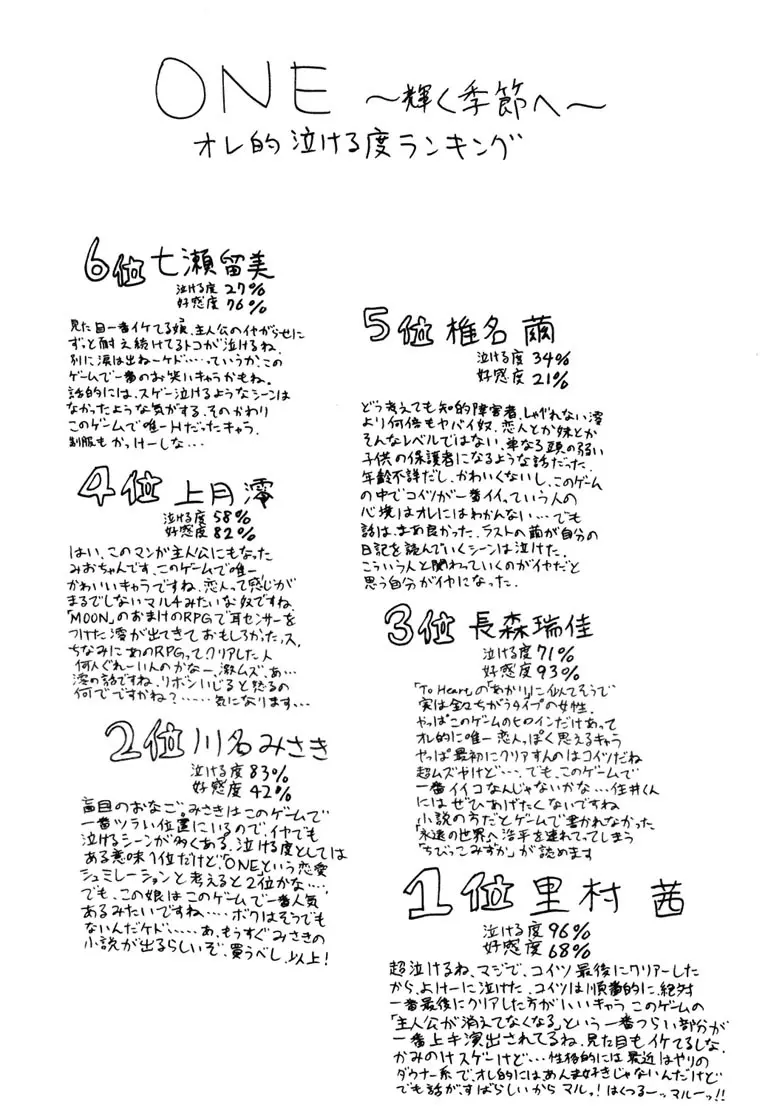 ONE ～輝く季節へ～
オレ的泣ける度ランキング
6位 七瀬留美
泣ける度 27%
好感度 76%
見た目一番イケてる娘、主人公のイヤがらせに
ずっと耐え続けてるトコが泣けるね、
別に涙は出ねーケド……っていうか、この
ゲームで一番のお笑いキャラかもね。
話的には、スゲー泣けるようなシーンは
なかったような気がする、そのかわり
このゲームで唯一Hだったキャラ、
制服もかっけーしな…
5位 椎名 繭
泣ける度 34%
好感度 21%
どう考えても知的障害者、しゃべれない澪
より何倍もヤバイ奴、恋人とか妹とか
そんなレベルではない、単なる頭の弱い
子供の保護者になるような話だった、
年齢不詳だし、かわいくないし、このゲーム
の中でコイツが一番イイっていう人の
心境はオレにはわかんない…でも
話は、まぁ良かった、ラストへ繭が自分の
日記を読んでいくシーンは泣けた、
こういう人と関わっていくのがイヤだと
思う自分がイヤになった。
4位 上月澪
泣ける度 58%
好感度 82%
はい、このマンガ主人公にもなった
みおちゃんです、このゲームで唯一
かわいいキャラですね、恋人って感じが
まるでしないマルチみたいな奴ですね、
「MOON」のおまけのRPGで耳センサーを
つけた澪が出てきておもしろかったっス、
ちなみにあのRPGってクリアした人
何人ぐれーいんのかなー、激ムズ、あ…
澪の話ですね、リボンいじると怒るの
何でですかね？……気になります…
3位 長森瑞佳
泣ける度 71%
好感度 93%
「To Heart」の「あかり」に似てそうで
実は全々ちがうタイプの女性、
やっぱこのゲームのヒロインだけあって
オレ的に唯一恋人っぽく思えるキャラ
やっぱ最初にクリアすんのはコイツだね
超ムズゃけど……でも、このゲームで
一番イイコなんじゃないかな…住井くん
にはぜひあげたくないですね
小説の方だとゲームで書かれなかった
「永遠の世界へ浩平を連れてってしまう
「ちびっこみずか」が読めます
2位 川名みさき
泣ける度 83%
好感度 42%
盲目のおなご。みさきはこのゲームで
一番ツラい位置にいるので、イヤでも
泣けるシーンが多くある、泣ける度としては
ある意味1位だけど、「ONE」という恋愛
シュミレーションと考えると2位かな…、
でも、この娘はこのゲームで一番人気
あるみたいですね……ボクはそうでも
ないんだケド……あ、もうすぐみさきの
小説が出るらしいぞ、買うべし、以上！
1位 里村 茜
泣ける度 96%
好感度 68%
超泣けるね、マジで、コイツ最後にクリアーした
から、よけーに泣けた、コイツは順番的に、絶対
一番最後にクリアした方がいいキャラ このゲームの
「主人公が消えてなくなる」という一番つらい部分が
一番上手演出されてるね、見た目もイケてるしな、
かみのけスゲーけど…性格的には最近はやりの
ダウナー系で、オレ的にはあんま好きじゃないんだけど
でも話が、すばらしいからマルっ！はくつるーッマルーっ!!